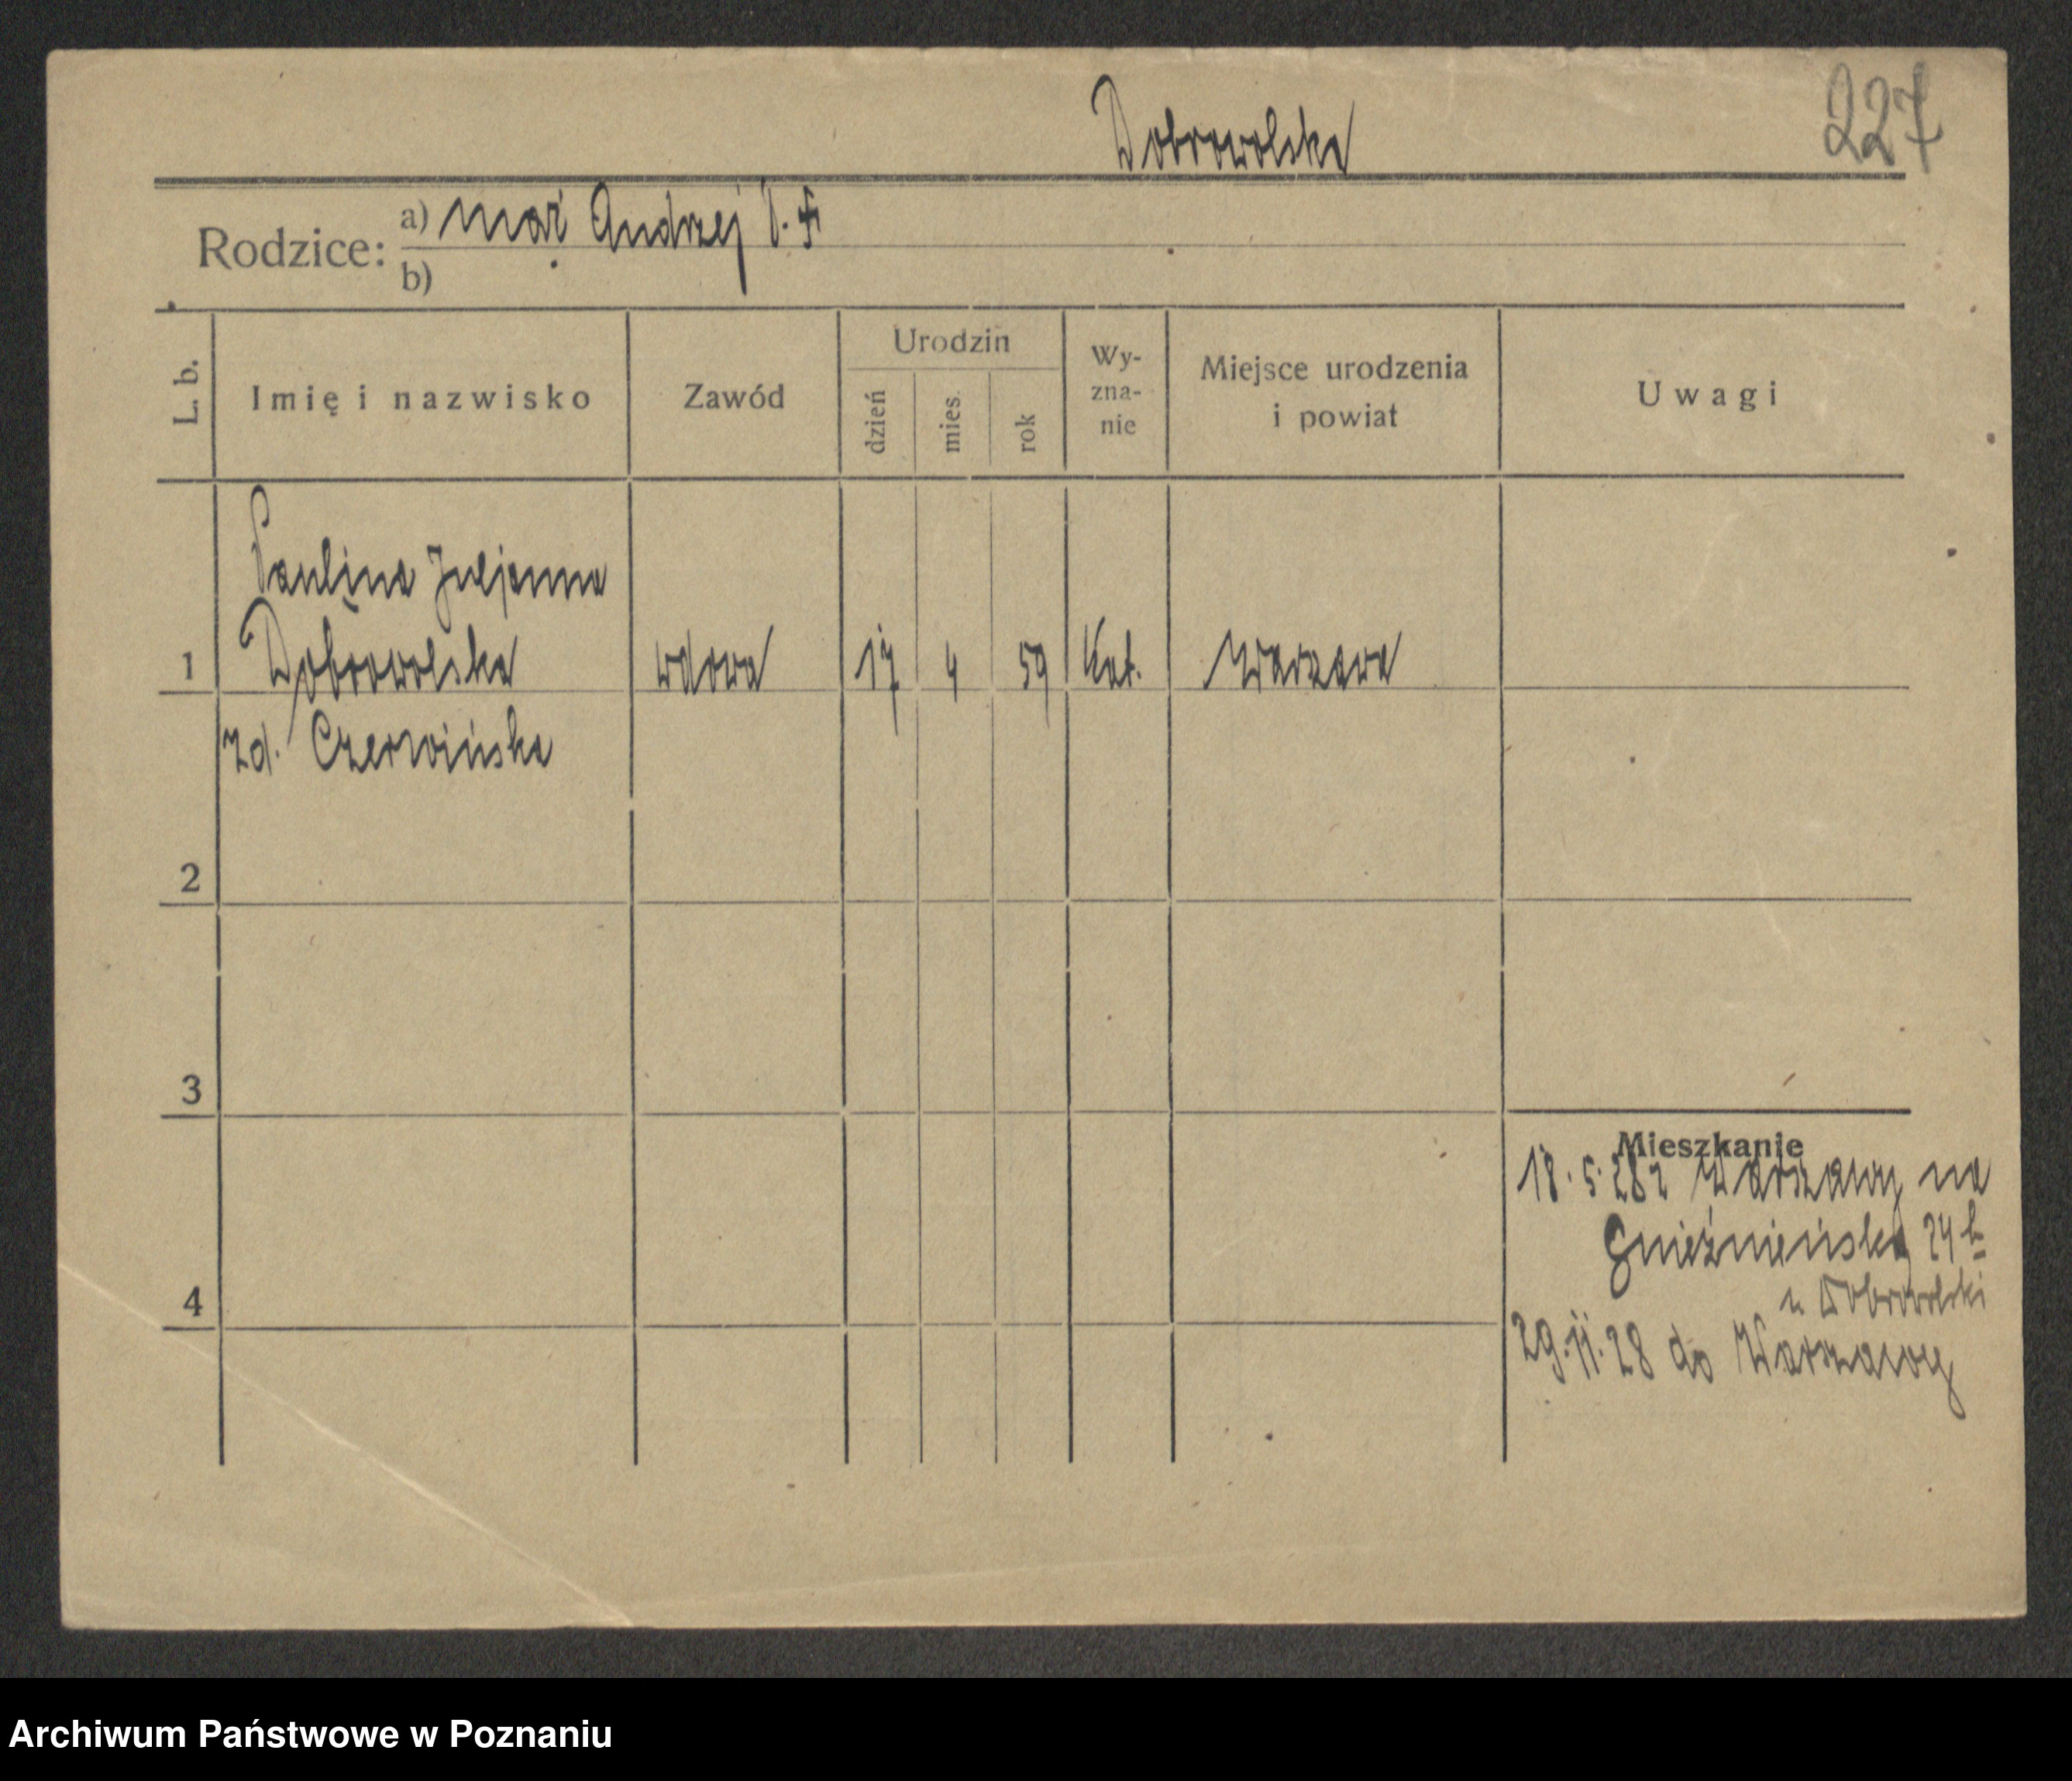 227
Dobrowolska
Rodzice:
a) mąż Andrzej
b)
L. b.
Imię i nazwisko
Zawód
Urodzin
dzień
mies.
rok
Wy-
zna-
nie
Miejsce urodzenia
i powiat
Uwagi
Paulina Juljanna
1 Dobrowolska wdowa 17 4 59 Kat. Warszawa
zd. Czerwińska
2
3
4
Mieszkanie
18.5.28 z Warszawy na
Gnieźnieńska 24
u Dobrowolski
29.11.28 do Warszawy
Archiwum Państwowe w Poznaniu